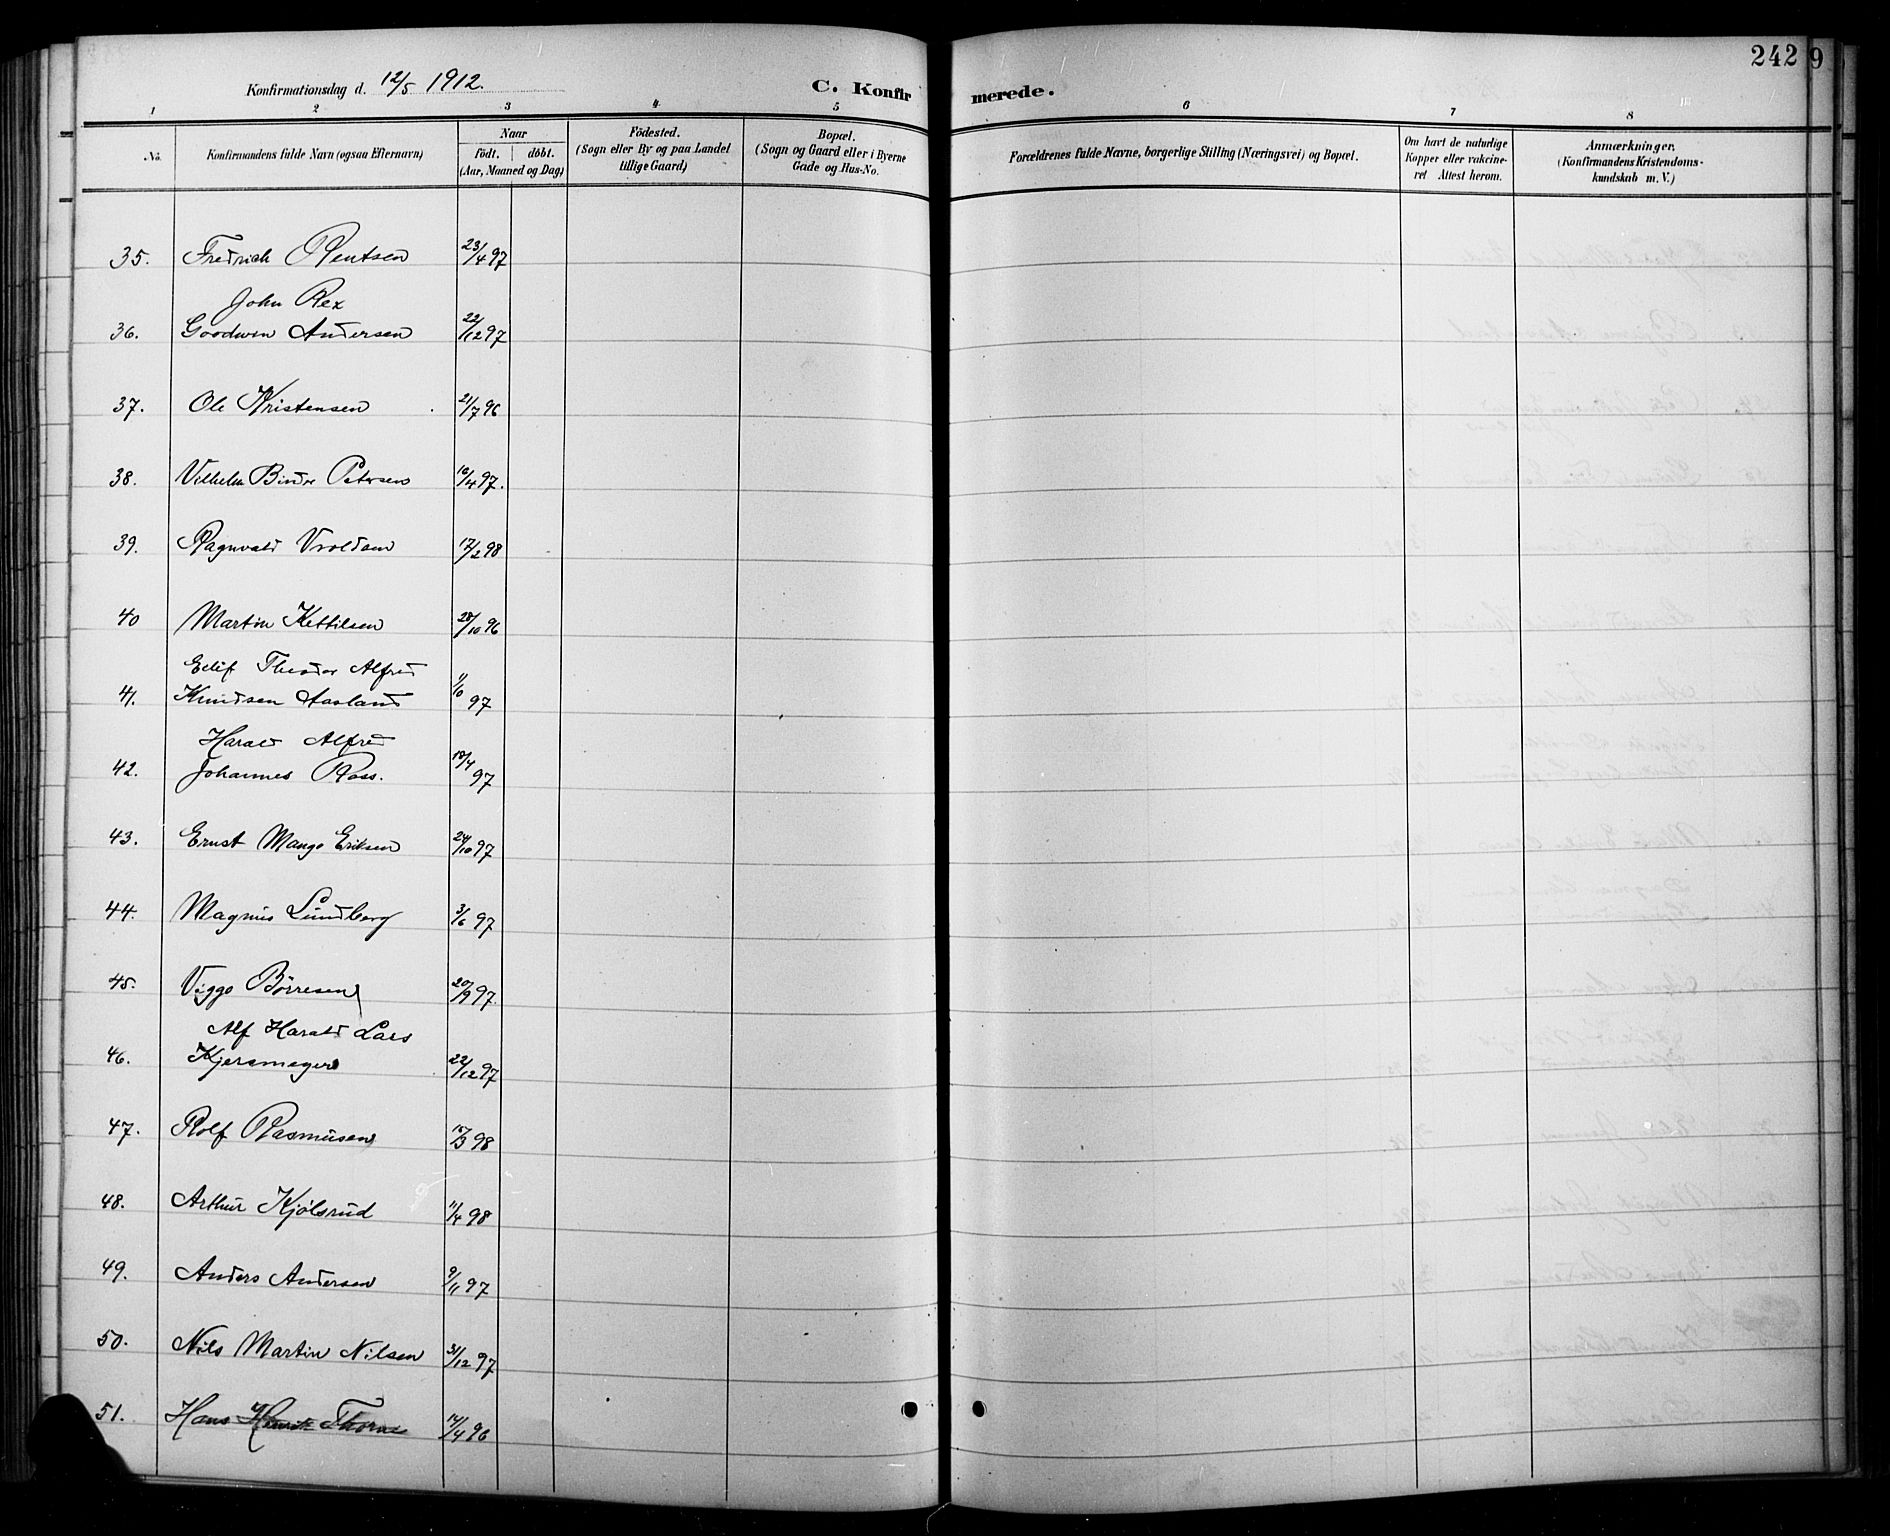 242
9
Konfirmationsdag d. 12/5 1912.
C. Konfir merede.
1 2 3 4 5 6 7 8
No.
Konfirmandens fulde Navn (ogsaa Efternavn)
Naar
födt. döbt.
(Aar, Maaned og Dag)
Födested.
(Sogn eller By og paa Landet
tillige Gaard)
Bopæl.
(Sogn og Gaard eller i Byerne
Gade og Hus-No.
Forældrenes fulde Navne, borgerlige Stilling (Næringsvei) og Bopæl.
Om havt de naturlige
Kopper eller vakcine-
ret Attest herom.
Anmærkninger.
(Konfirmandens Kristendoms-
kundskab m. V.)
35. Fredrich Rentsen 23/4 97
John Rex
36. Goodwin Andersen 22/12 97
37. Ole Kristensen 21/7 96
38. Vilhelm Petersen 10/4 97.
39. Ragnvald Vroldsen 17/2 98
40 Martin Kettilsen 28/10 96
Eilif Theodor Alfred
41. Knudsen Aasland 1/10 97
Harald Alfred
42. Johannes Ross. 18/4 97
43. Ernst Mango Eriksen 24/10 97
44. Magnus Lundberg 3/6 97
45. Viggo Börresen 20/9 97.
Alf Harald Lars
46. Kjersmeyer 22/12 97
47. Rolf Rasmusen 15/3 98
48. Arthur Kjölsrud 11/4 98
49. Anders Andersen 9/11 97
50. Nils Martin Nilsen 31/12 97
51. Hans Henrik Thorne 14/4 96